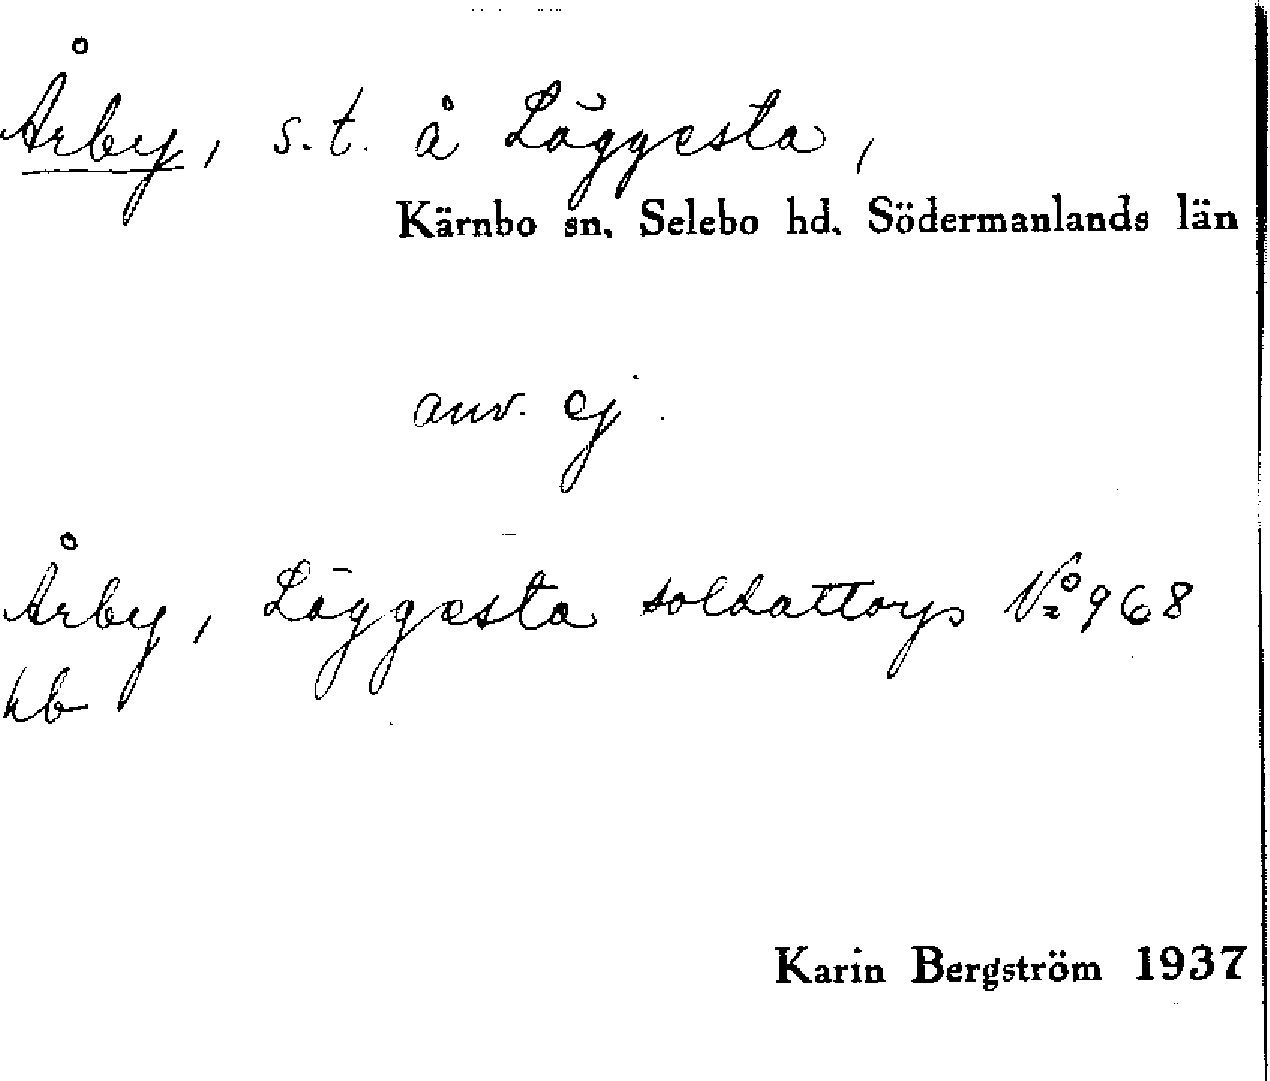 Årby, s.t. å Läggesta,
Kärnbo sn. Selebo hd. Södermanlands län
anv. ej.
Årby, Läggesta soldattorp No 968
kb
Karin Bergström 1937